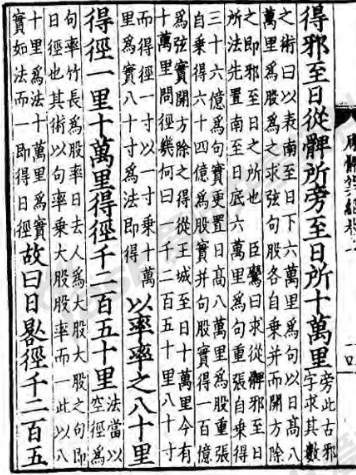 得邪至日從髀所旁至日所十萬里
旁此古邪
字求其數
之術曰以表南至日下六萬里爲句以日高八
萬里爲股爲之求弦句股各自乘并而開方除
之即邪至日之所也 臣鸞曰求從髀邪至日
所法先置南至日底六萬里爲句重張自乘得
三十六億爲句實更置日高八萬里爲股重張
自乘得六十四億爲股實并句股實得一百億
爲弦實開方除之得從王城至日十萬里今有
十萬里問徑幾何曰一千二百五十里八十寸
而得徑一寸以一寸乘十萬
里爲實八十寸爲法即得
以率率之八十里
得徑一里十萬里得徑千二百五十里
法當以
空徑爲
句率竹長爲股率日去人爲大股大股之句即
日徑也其術以句率乘大股股率而一此以八
十里爲法十萬里爲實
實如法而一即得日徑
故曰日晷徑千二百五